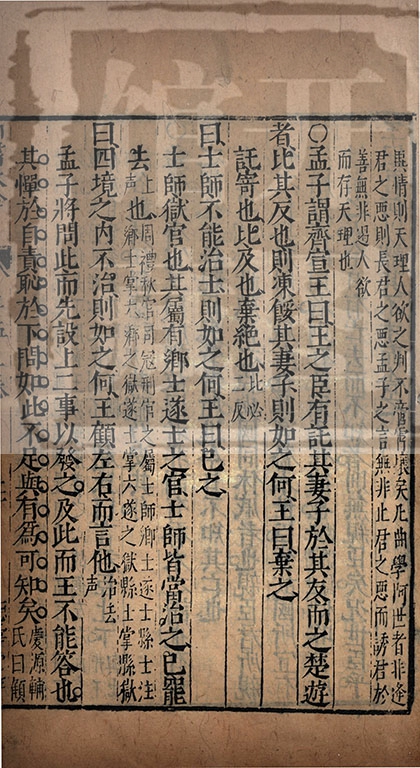 其情則天理人欲之判不啻霄壤矣凡曲學阿世者非逢
君之惡則長君之惡孟子之言無非止君之惡而誘君於
善無非遏人欲
而存天理也
○孟子謂齊宣王曰王之臣有託其妻子於其友而之楚遊
者比其反也則凍餒其妻子則如之何王曰棄之
託寄也比及也棄絕也
比必
反
曰士師不能治士則如之何王曰已之
士師獄官也其屬有鄉士遂士之官士師皆當治之已罷
去也
去上
聲
周禮秋官司寇刑官之屬士師鄉士遂士縣士注
鄉士掌六鄉之獄遂士掌六遂之獄縣士掌縣獄
曰四境之內不治則如之何王顧左右而言他
治去
聲
孟子將問此而先設上二事以發之及此而王不能答也
其憚於自責恥於下問如此不足與有為可知矣
慶源輔
氏曰顧